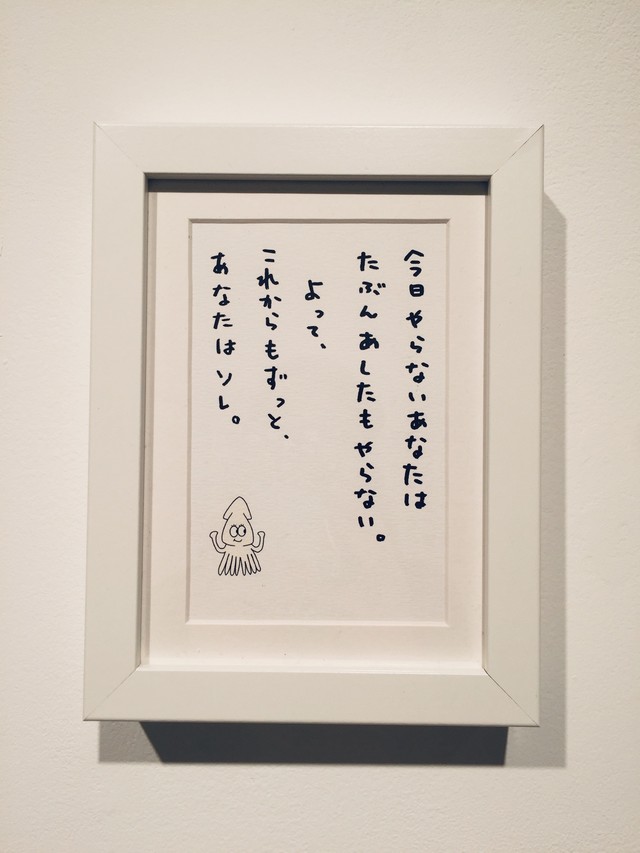 今日やらないあなたは
たぶんあしたもやらない。
よって、
これからもずっと、
あなたはソレ。